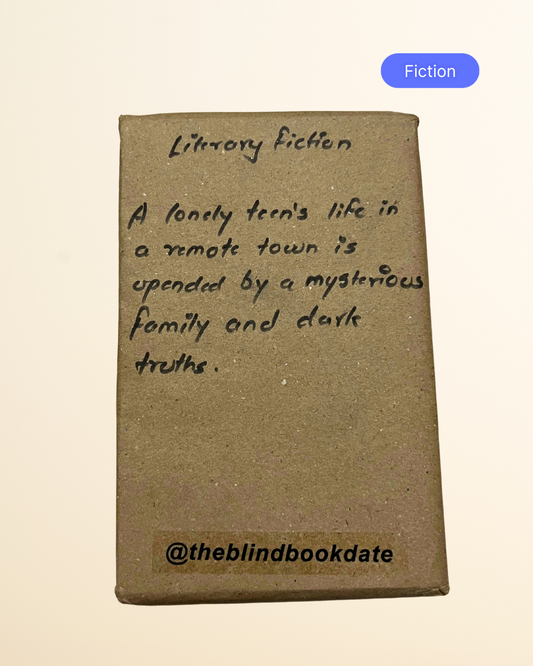 Fiction
Literary fiction
A lonely teen's life in
a remote town is
upended by a mysterious
family and dark
truths.
@theblindbookdate